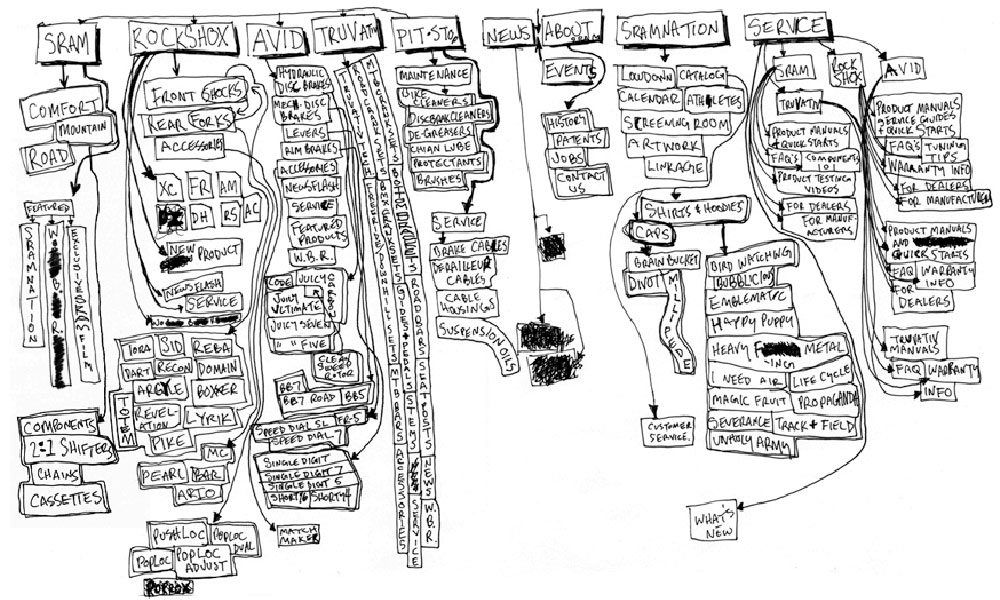 SRAM
ROCKSHOX
AVID
TRUVATIV
PIT-STOP
NEWS
ABOUT
SRAMNATION
SERVICE
COMFORT
MOUNTAIN
ROAD
FEATURED
SRAMNATION
EXCLUSIVE SRAM FILM
COMPONENTS
2:1 SHIFTERS
CHAINS
CASSETTES
FRONT SHOCKS
REAR FORKS
ACCESSORIES
XC FR AM
DH RS AC
NEW PRODUCT
NEWSFLASH
SERVICE
TORA SID REBA
DART RECON DOMAIN
TOTEM
ARGYLE BOXXER
REVEL-
ATION LYRIK
PIKE
MC
PEARL BAR
ARIO
PUSHLOC POPLOC
DUAL
POPLOC POPLOC
ADJUST
HYDRAULIC
DISC BRAKES
MECH. DISC
BRAKES
LEVERS
RIM BRAKES
ACCESSORIES
NEWSFLASH
SERVICE
FEATURED
PRODUCTS
W.B.R.
CODE JUICY
CARBON
JUICY
ULTIMATE
JUICY SEVEN
" " FIVE
CLEAN
SWEEP
ROTOR
BB7
BB7 ROAD BB5
SPEED DIAL SL FR-5
SPEED DIAL 7
SINGLE DIGIT
SINGLE DIGIT 7
SINGLE DIGIT 5
SHORTY 6 SHORTY 4
MATCH
MAKER
MTB BARS
ACCESSORIES
STEMS
SERVICE
ROAD BARS
SEAT POSTS
NEWS
W.B.R.
MAINTENANCE
BIKE
CLEANERS
DISC BRAKE CLEANERS
DE-GREASERS
CHAIN LUBE
PROTECTANTS
BRUSHES
SERVICE
BRAKE CABLES
DERAILLEUR
CABLES
CABLE
HOUSINGS
SUSPENSION OILS
EVENTS
HISTORY
PATENTS
JOBS
CONTACT
US
LOWDOWN CATALOG
CALENDAR ATHLETES
SCREENING ROOM
ARTWORK
LINKAGE
SHIRTS & HOODIES
CAPS
BRAIN BUCKET
DWOT
MILLIPEDE
CUSTOMER
SERVICE.
BIRD WATCHING
BUBBLICIOUS
EMBLEMATIC
HAPPY PUPPY
HEAVY METAL
I NEED AIR LIFE CYCLE
MAGIC FRUIT PROPAGANDA
SEVERANCE TRACK + FIELD
UNHOLY ARMY
WHAT'S
NEW
SRAM
TRUVATIV
PRODUCT MANUALS
& QUICK STARTS
FAQ'S COMPONENTS
PRODUCT TESTING
VIDEOS
FOR DEALERS
FOR MANUF-
ACTURERS
ROCK
SHOX
AVID
PRODUCT MANUALS
SERVICE GUIDES
& QUICK STARTS
FAQ'S TUNING
TIPS
WARRANTY INFO
FOR DEALERS
FOR MANUFACTURERS
PRODUCT MANUALS
AND
QUICK STARTS
FAQ WARRANTY
INFO
FOR
DEALERS
TRUVATIV
MANUALS
FAQ WARRANTY
INFO